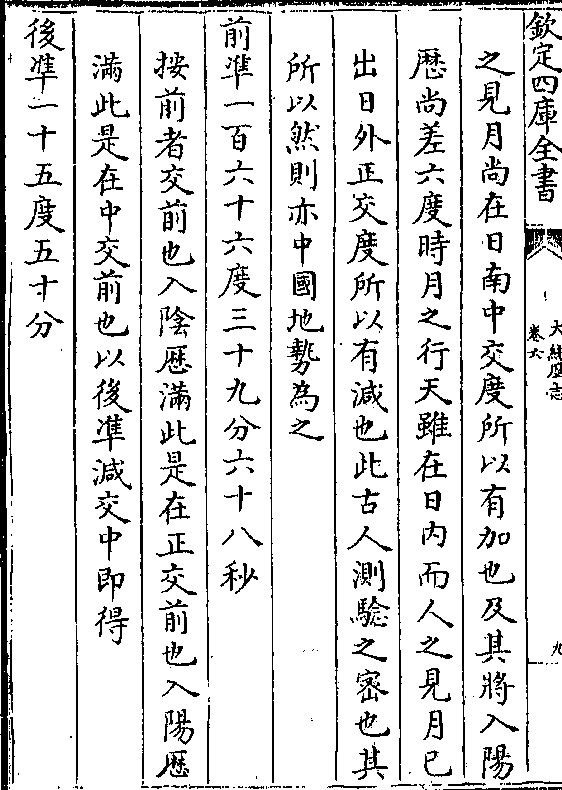 欽定四庫全書
大統厯志
卷六
九
之見月尚在日南中交度所以有加也及其將入陽
厯尚差六度時月之行天雖在日内而人之見月已
出日外正交度所以有減也此古人測驗之宻也其
所以然則亦中國地勢為之
前凖一百六十六度三十九分六十八秒
按前者交前也入隂厯滿此是在正交前也入陽厯
滿此是在中交前也以後凖減交中即得
後凖一十五度五十分